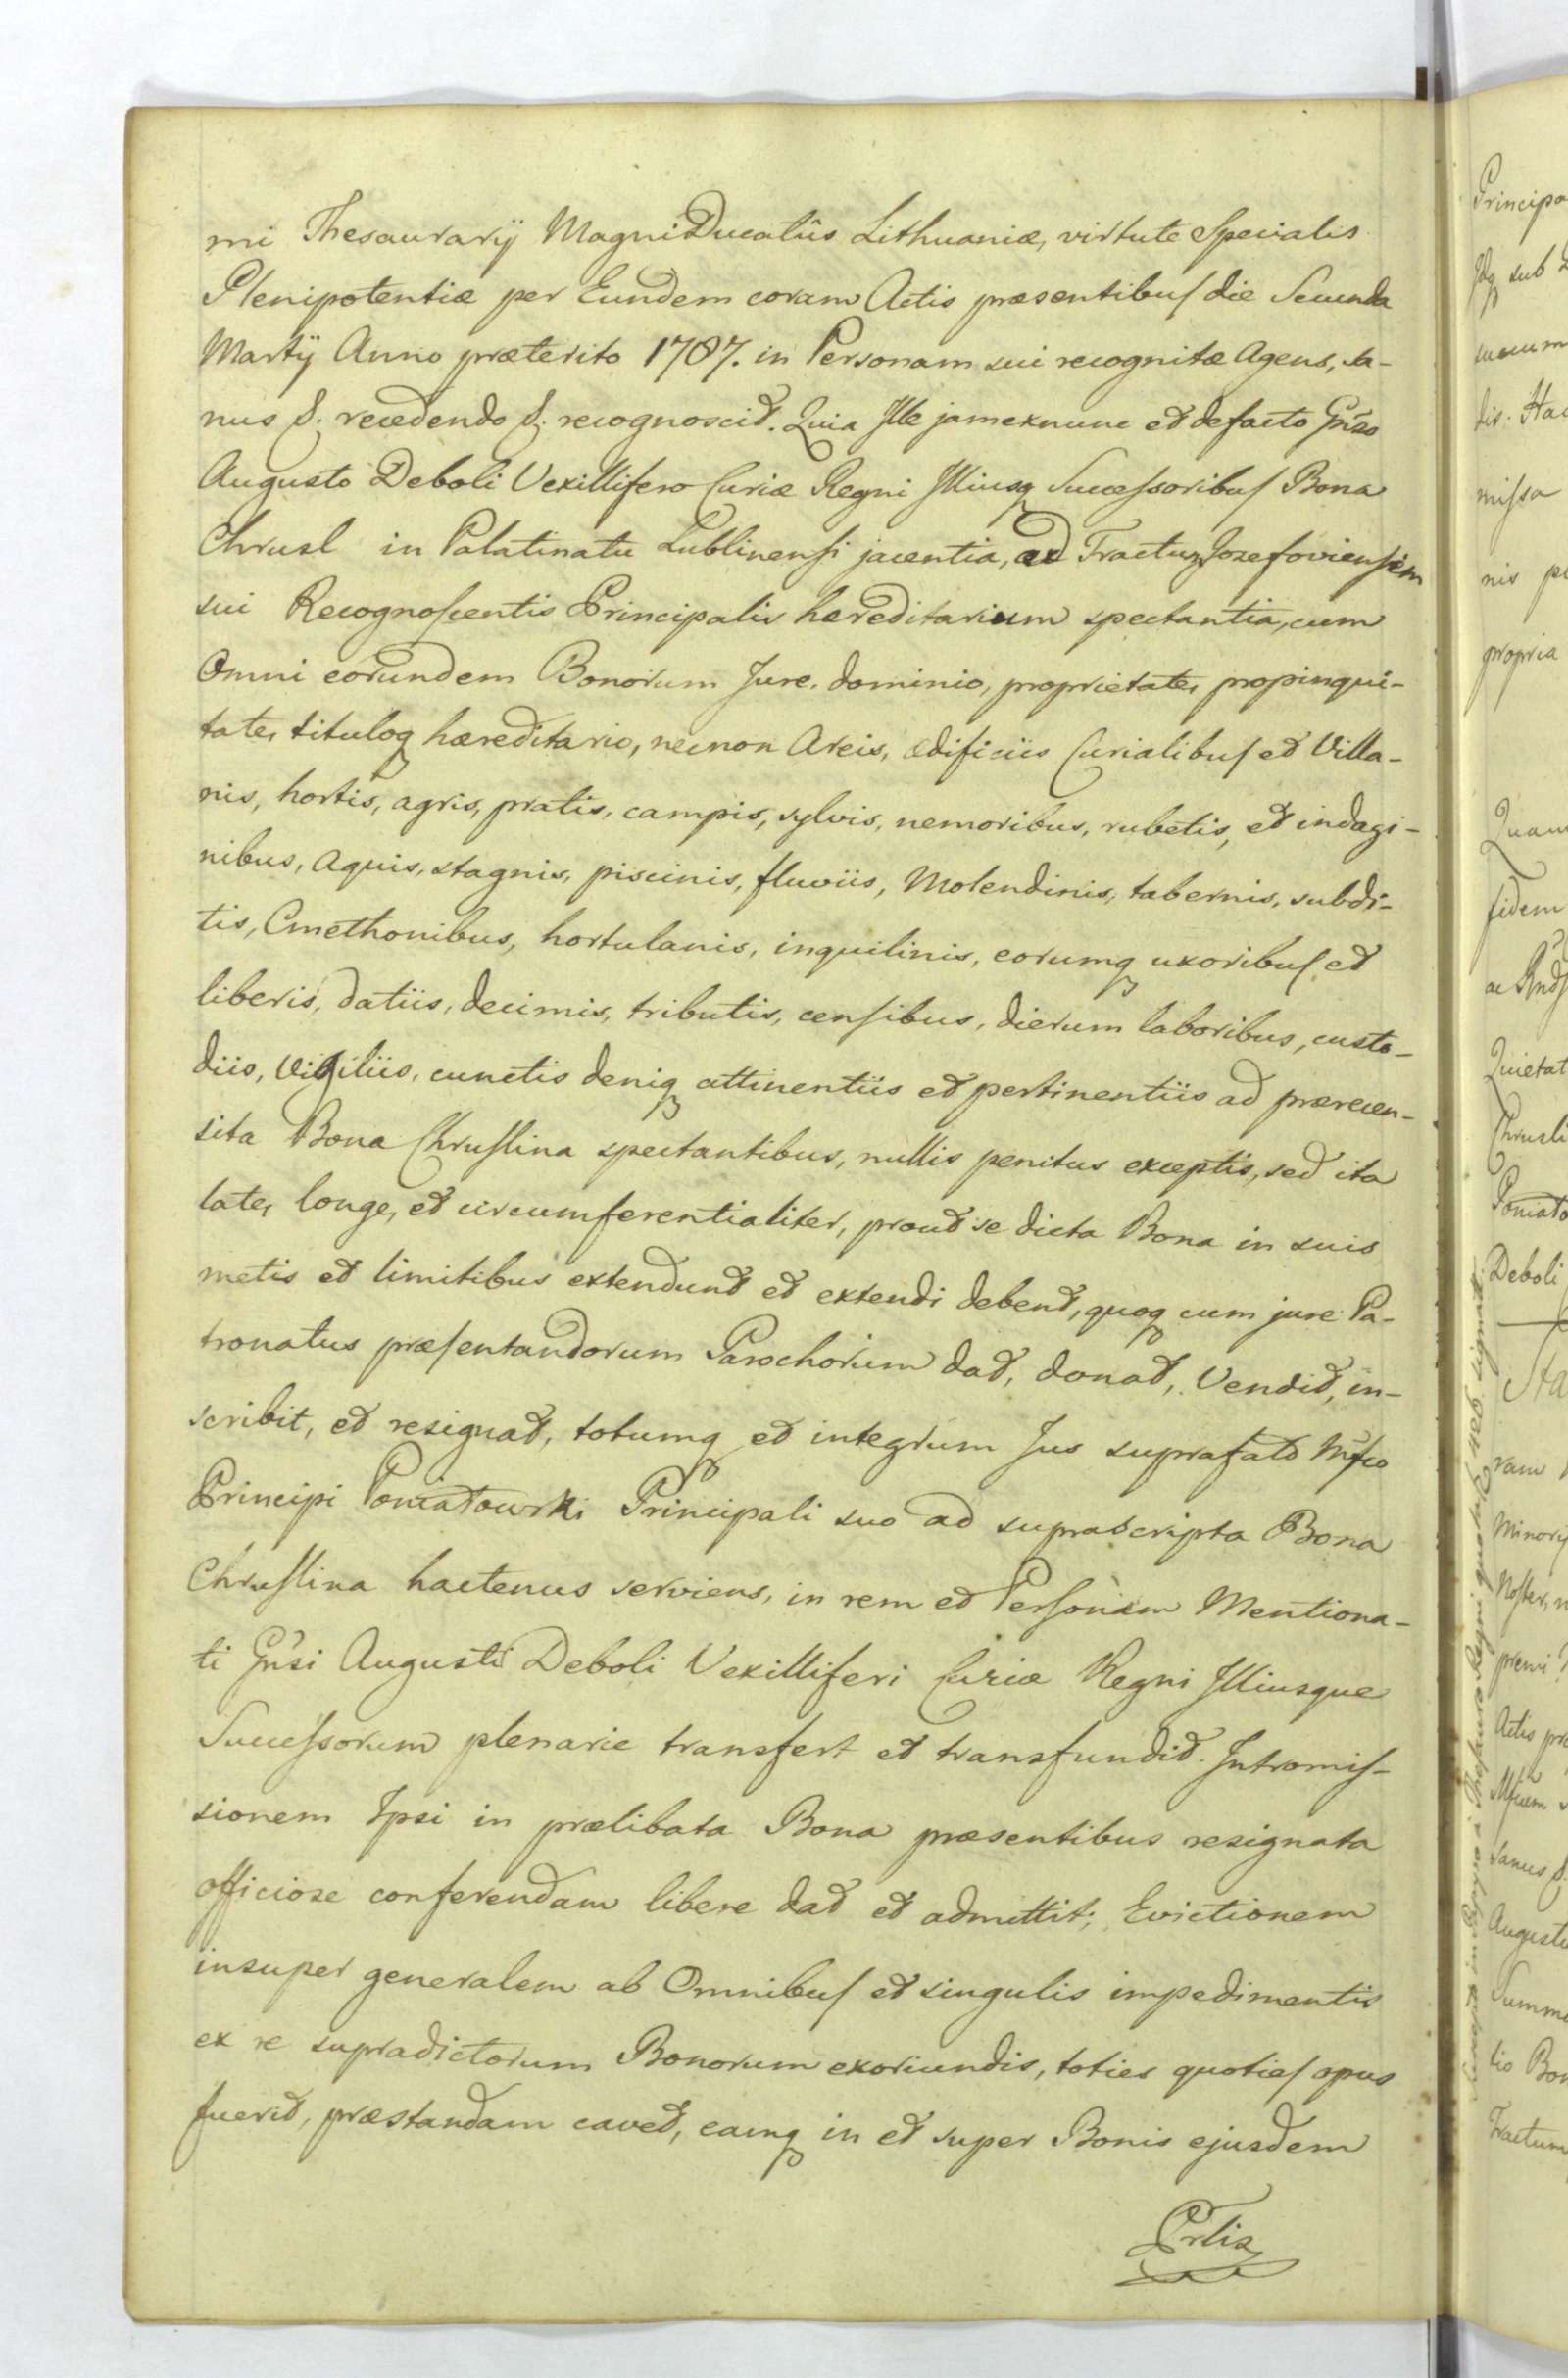 mi Thesaurarÿ Magni Ducatûs Lithuaniæ, virtute Specialis
Plenipotentiæ per Eundem coram Actis præsentibus die Secunda
Martÿ Anno præterito 1787. in Personam sui recognitæ Agens, sa-
nus &. recedendo &. recognoscit. Quia Ille jam ex nunc et de facto Gñso
Augusto Deboli Vexillifero Curiæ Regni Illiusq Successoribus Bona
Chrusl in Palatinatu Lublinensi jacentia, ad Tractum Jozefoviensem
sui Recognoscentis Principalis hæreditarium spectantia, cum
Omni eorundem Bonorum Jure, dominio, proprietate, propinqui-
tate, tituloq hæreditario, necnon Areis, ædificiis Curialibus et Villa-
nis, hortis, agris, pratis, campis, sylvis, nemoribus, rubetis, et indagi-
nibus, Aquis, stagnis, piscinis, fluviis, Molendinis, tabernis, subdi-
tis, Cmethonibus, hortulanis, inquilinis, eorumq uxoribus et
liberis, datiis, decimis, tributis, censibus, dierum laboribus, custo-
diis, Vigiliis, cunctis deniq attinentiis et pertinentiis ad præreçen-
sita Bona Chruslina spectantibus, nullis penitus exceptis, sed ita
late, longe, et circumferentialiter, prout se dicta Bona in suis
metis et limitibus extendunt et extendi debent, quoq cum jure Pa-
tronatus præsentandorum Parochorum dat, donat, Vendit, in-
scribit, et resignat, totumq et integrum Jus suprafato Mfco
Principi Poniatowski Principali suo ad suprascripta Bona
Chruslina hactenus serviens, in rem et Personam Mentiona-
ti Gñsi Augusti Deboli Vexilliferi Curiæ Regni Illiusque
Successorum plenarie transfert et transfundit. Intromis-
sionem Ipsi in prælibata Bona præsentibus resignata
officiose conferendam libere dat et admittit; Evictionem
insuper generalem ab Omnibus et singulis impedimentis
ex re supradictorum Bonorum exoriundis, toties quoties opus
fuerit, præstandam cavet, eamq in et super Bonis ejusdem
Prlis
Principa
sub
dis. Hac
missa
nis
propria
Quam
fidem
Quietat
Chrusli
Poniato
Deboli
ram
Minory
Noster,
Actis præ
Sanus &
Augusto
Summa
tio Bon
Tractum